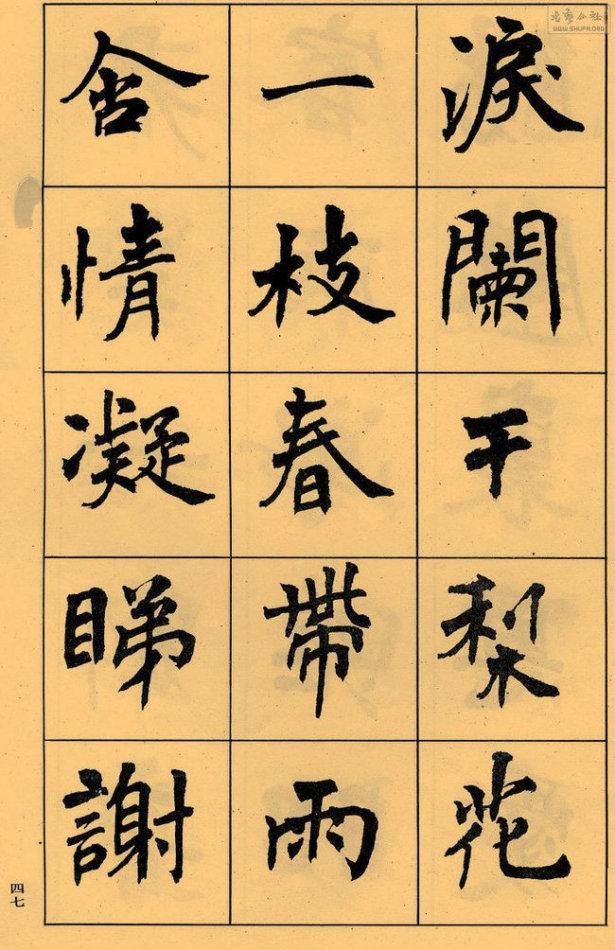 淚闌干梨花
一枝春帶雨
含情凝睇謝
四七
WWW.SHUFR.ORG